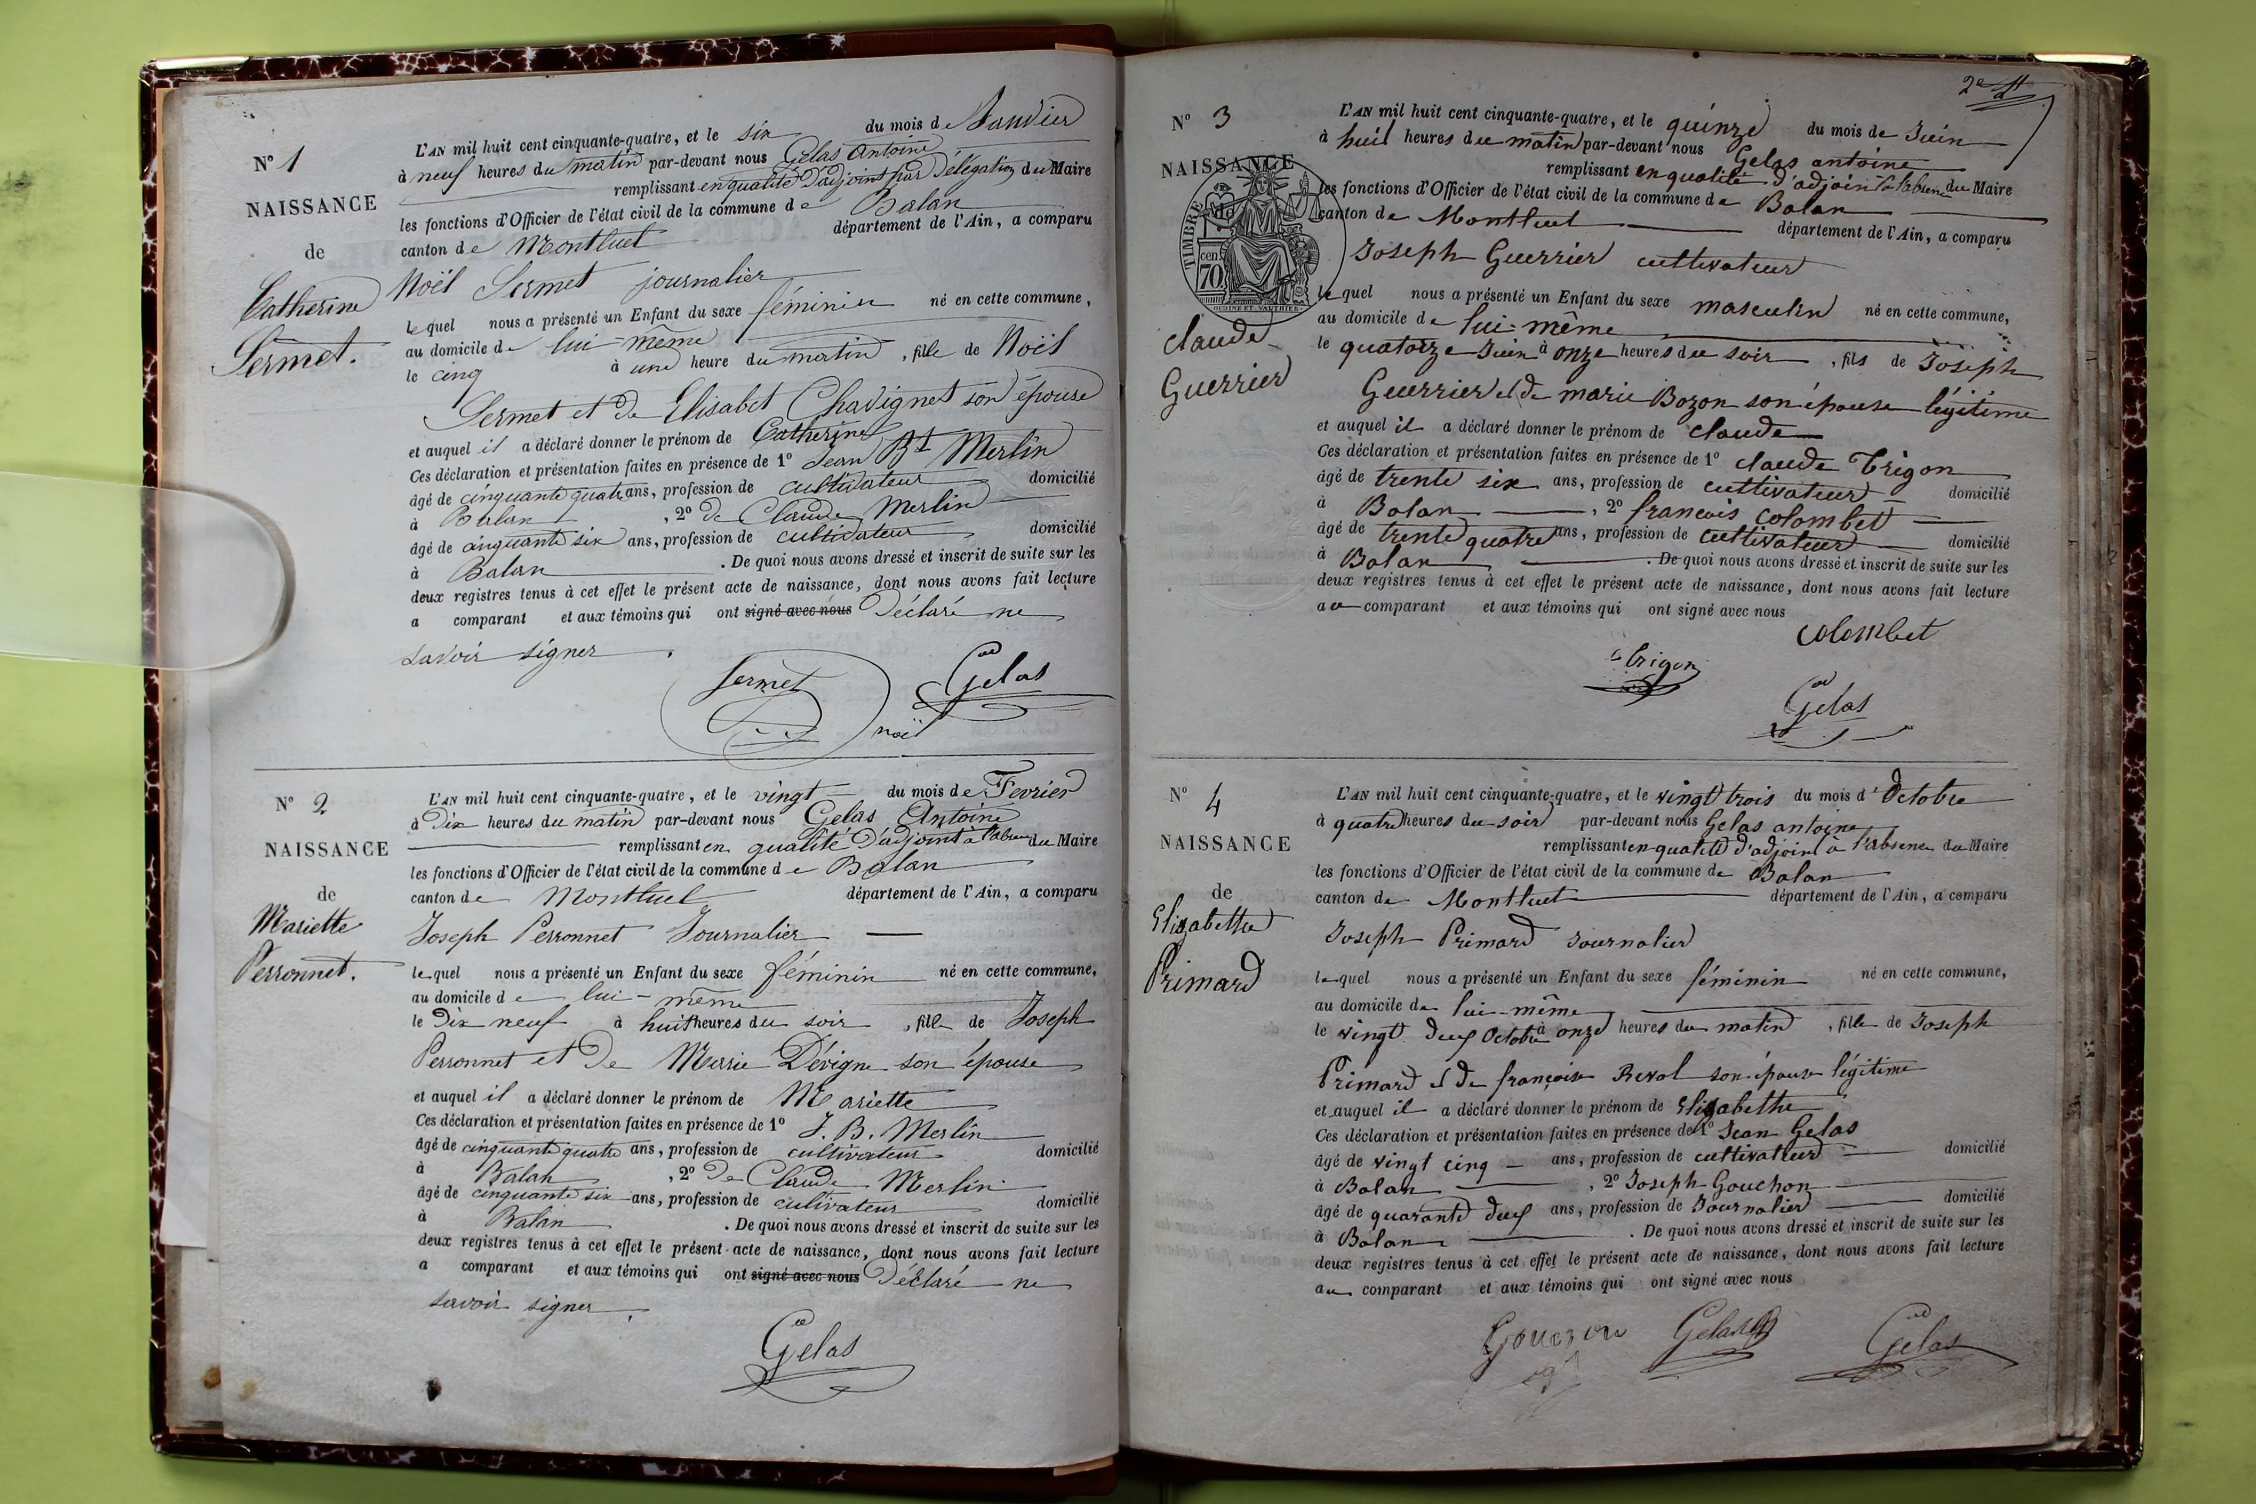 N° 1
NAISSANCE
de
Catherine
Sermet.
L'AN mil huit cent cinquante-quatre, et le six du mois de Janvier
à neuf heures du matin par-devant nous Gelas Antoine
remplissant en qualité d'adjoint par délégation du Maire
les fonctions d'Officier de l'état civil de la commune de Balan
canton de Montluel département de l'Ain, a comparu
Noël Sermet journalier
lequel nous a présenté un Enfant du sexe féminin né en cette commune,
au domicile de lui-même
le cinq à une heure du matin, fille de Noël
Sermet et de Elisabet Chavignet son épouse
et auquel il a déclaré donner le prénom de Catherine
Ces déclaration et présentation faites en présence de 1° Jean Bt Merlin
âgé de cinquante quatre ans, profession de cultivateur domicilié
à Balan, 2° de Claude Merlin
âgé de cinquante six ans, profession de cultivateur, domicilié
à Balan. De quoi nous avons dressé et inscrit de suite sur les
deux registres tenus à cet effet le présent acte de naissance, dont nous avons fait lecture
a comparant et aux témoins qui ont signé avec nous Déclaré ne
savoir signer.
Sermet
noël
Gelas
N° 2
NAISSANCE
de
Mariette
Perronnet.
L'AN mil huit cent cinquante-quatre, et le vingt du mois de Fevrier
à Dix heures du matin par-devant nous Gelas Antoine
remplissant en qualité d'adjoint à l'absen du Maire
les fonctions d'Officier de l'état civil de la commune de Balan
canton de Montluel département de l'Ain, a comparu
Joseph Perronnet Journalier
lequel nous a présenté un Enfant du sexe féminin né en cette commune,
au domicile de lui-même
le Dix neuf à huit heures du soir, fille de Joseph
Perronnet et de Marie Dévigne son épouse
et auquel il a déclaré donner le prénom de Mariette
Ces déclaration et présentation faites en présence de 1° J. B. Merlin
âgé de cinquante quatre ans, profession de cultivateur domicilié
à Balan, 2° de Claude Merlin
âgé de cinquante six ans, profession de cultivateur domicilié
à Balan. De quoi nous avons dressé et inscrit de suite sur les
deux registres tenus à cet effet le présent acte de naissance, dont nous avons fait lecture
a comparant et aux témoins qui ont signé avec nous Déclaré ne
savoir signer.
Gelas
2e
N° 3
NAISSANCE
de
TIMBRE
cen
70
claude
Guerrier
L'AN mil huit cent cinquante-quatre, et le quinze du mois de Juin
à huit heures du matin par-devant nous Gelas antoine
remplissant en qualité d'adjoint à l'absence du Maire
les fonctions d'Officier de l'état civil de la commune de Balan
canton de Montluel département de l'Ain, a comparu
Joseph Guerrier cultivateur
lequel nous a présenté un Enfant du sexe masculin né en cette commune,
au domicile de lui-même
le quatorze Juin à onze heures du soir, fils de Joseph
Guerrier et de marie Bozon son épouse légitime
et auquel il a déclaré donner le prénom de claude
Ces déclaration et présentation faites en présence de 1° claude Trigon
âgé de trente six ans, profession de cultivateur domicilié
à Balan, 2° francois Colombet
âgé de trente quatre ans, profession de cultivateur domicilié
à Balan. De quoi nous avons dressé et inscrit de suite sur les
deux registres tenus à cet effet le présent acte de naissance, dont nous avons fait lecture
au comparant et aux témoins qui ont signé avec nous
Colombet
Trigon
Gelas
N° 4
NAISSANCE
de
Elizabethe
Primard
L'AN mil huit cent cinquante-quatre, et le vingt trois du mois d'Octobre
à quatre heures du soir par-devant nous Gelas antoine
remplissant en qualité d'adjoint à l'absence du Maire
les fonctions d'Officier de l'état civil de la commune de Balan
canton de Montluel département de l'Ain, a comparu
Joseph Primard Journalier
lequel nous a présenté un Enfant du sexe féminin né en cette commune,
au domicile de lui-même
le vingt deux Octobre à onze heures du matin, fille de Joseph
Primard et de françoise Revol son épouse légitime
et auquel il a déclaré donner le prénom de Elizabethe
Ces déclaration et présentation faites en présence de 1° Jean Gelas
âgé de vingt cinq ans, profession de cultivateur domicilié
à Balan, 2° Joseph Gouchon
âgé de quarante deux ans, profession de Journalier domicilié
à Balan. De quoi nous avons dressé et inscrit de suite sur les
deux registres tenus à cet effet le présent acte de naissance, dont nous avons fait lecture
au comparant et aux témoins qui ont signé avec nous
Gelas
Gelas